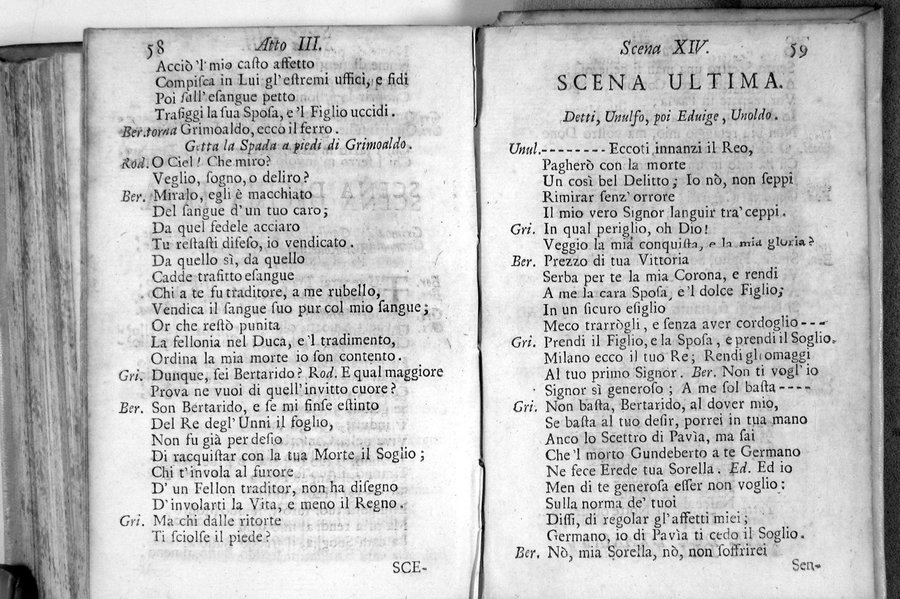 58 Atto III.
Acciò 'l mio caſto affetto
Compiſca in Lui gl'eſtremi uffici, e fidi
Poi ſull'eſangue petto
Trafiggi la ſua Spoſa, e 'l Figlio uccidi.
Ber. torna Grimoaldo, ecco il ferro.
Getta la Spada a piedi di Grimoaldo.
Rod. O Ciel! Che miro?
Veglio, ſogno, o deliro?
Ber. Miralo, egli è macchiato
Del ſangue d'un tuo caro;
Da quel fedele acciaro
Tu reſtaſti difeſo, io vendicato.
Da quello sì, da quello
Cadde trafitto eſangue
Chi a te fu traditore, a me rubello,
Vendica il ſangue ſuo pur col mio ſangue;
Or che reſtò punita
La fellonia nel Duca, e 'l tradimento,
Ordina la mia morte io ſon contento.
Gri. Dunque, ſei Bertarido? Rod. E qual maggiore
Prova ne vuoi di quell'invitto cuore?
Ber. Son Bertarido, e ſe mi finſe eſtinto
Del Re degl'Unni il foglio,
Non fu già per deſio
Di racquiſtar con la tua Morte il Soglio;
Chi t'invola al furore
D'un Fellon traditor, non ha diſegno
D'involarti la Vita, e meno il Regno.
Gri. Ma chi dalle ritorte
Ti sciolſe il piede?
SCE-
Scena XIV. 59
SCENA ULTIMA.
Detti, Unulfo, poi Eduige, Unoldo.
Unul.-------- Eccoti innanzi il Reo,
Pagherò con la morte
Un così bel Delitto; Io nò, non ſeppi
Rimirar ſenz'orrore
Il mio vero Signor languir tra' ceppi.
Gri. In qual periglio, oh Dio!
Veggio la mia conquiſta, e la mia gloria?
Ber. Prezzo di tua Vittoria
Serba per te la mia Corona, e rendi
A me la cara Spoſa, e 'l dolce Figlio;
In un ſicuro eſiglio
Meco trarrògli, e ſenza aver cordoglio ---
Gri. Prendi il Figlio, e la Spoſa, e prendi il Soglio.
Milano ecco il tuo Re; Rendi gli omaggi
Al tuo primo Signor. Ber. Non ti vogl'io
Signor sì generoſo; A me ſol baſta ----
Gri. Non baſta, Bertarido, al dover mio,
Se baſta al tuo deſir, porrei in tua mano
Anco lo Scettro di Pavìa, ma ſai
Che 'l morto Gundeberto a te Germano
Ne fece Erede tua Sorella. Ed. Ed io
Men di te generoſa eſſer non voglio:
Sulla norma de' tuoi
Diſſi, di regolar gl'affetti miei;
Germano, io di Pavìa ti cedo il Soglio.
Ber. Nò, mia Sorella, nò, non ſoffrirei
Sen-